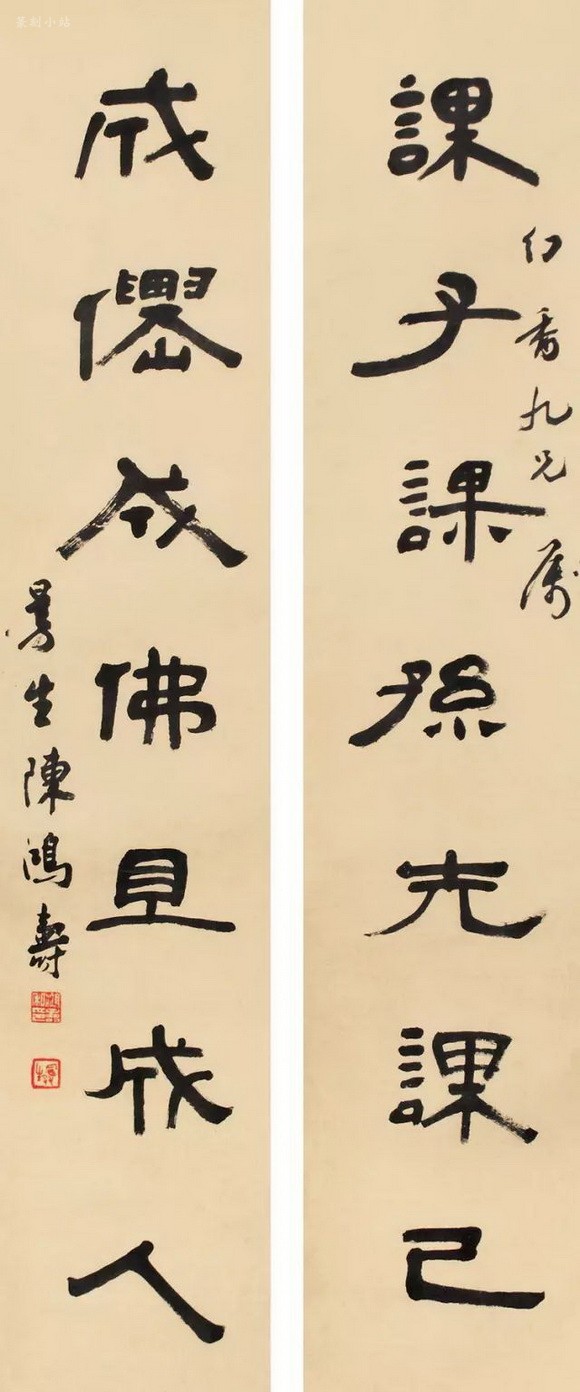 課子課孫先課己
幻香九兄属
成僊成佛且成人
曼生陳鴻壽
篆刻小站